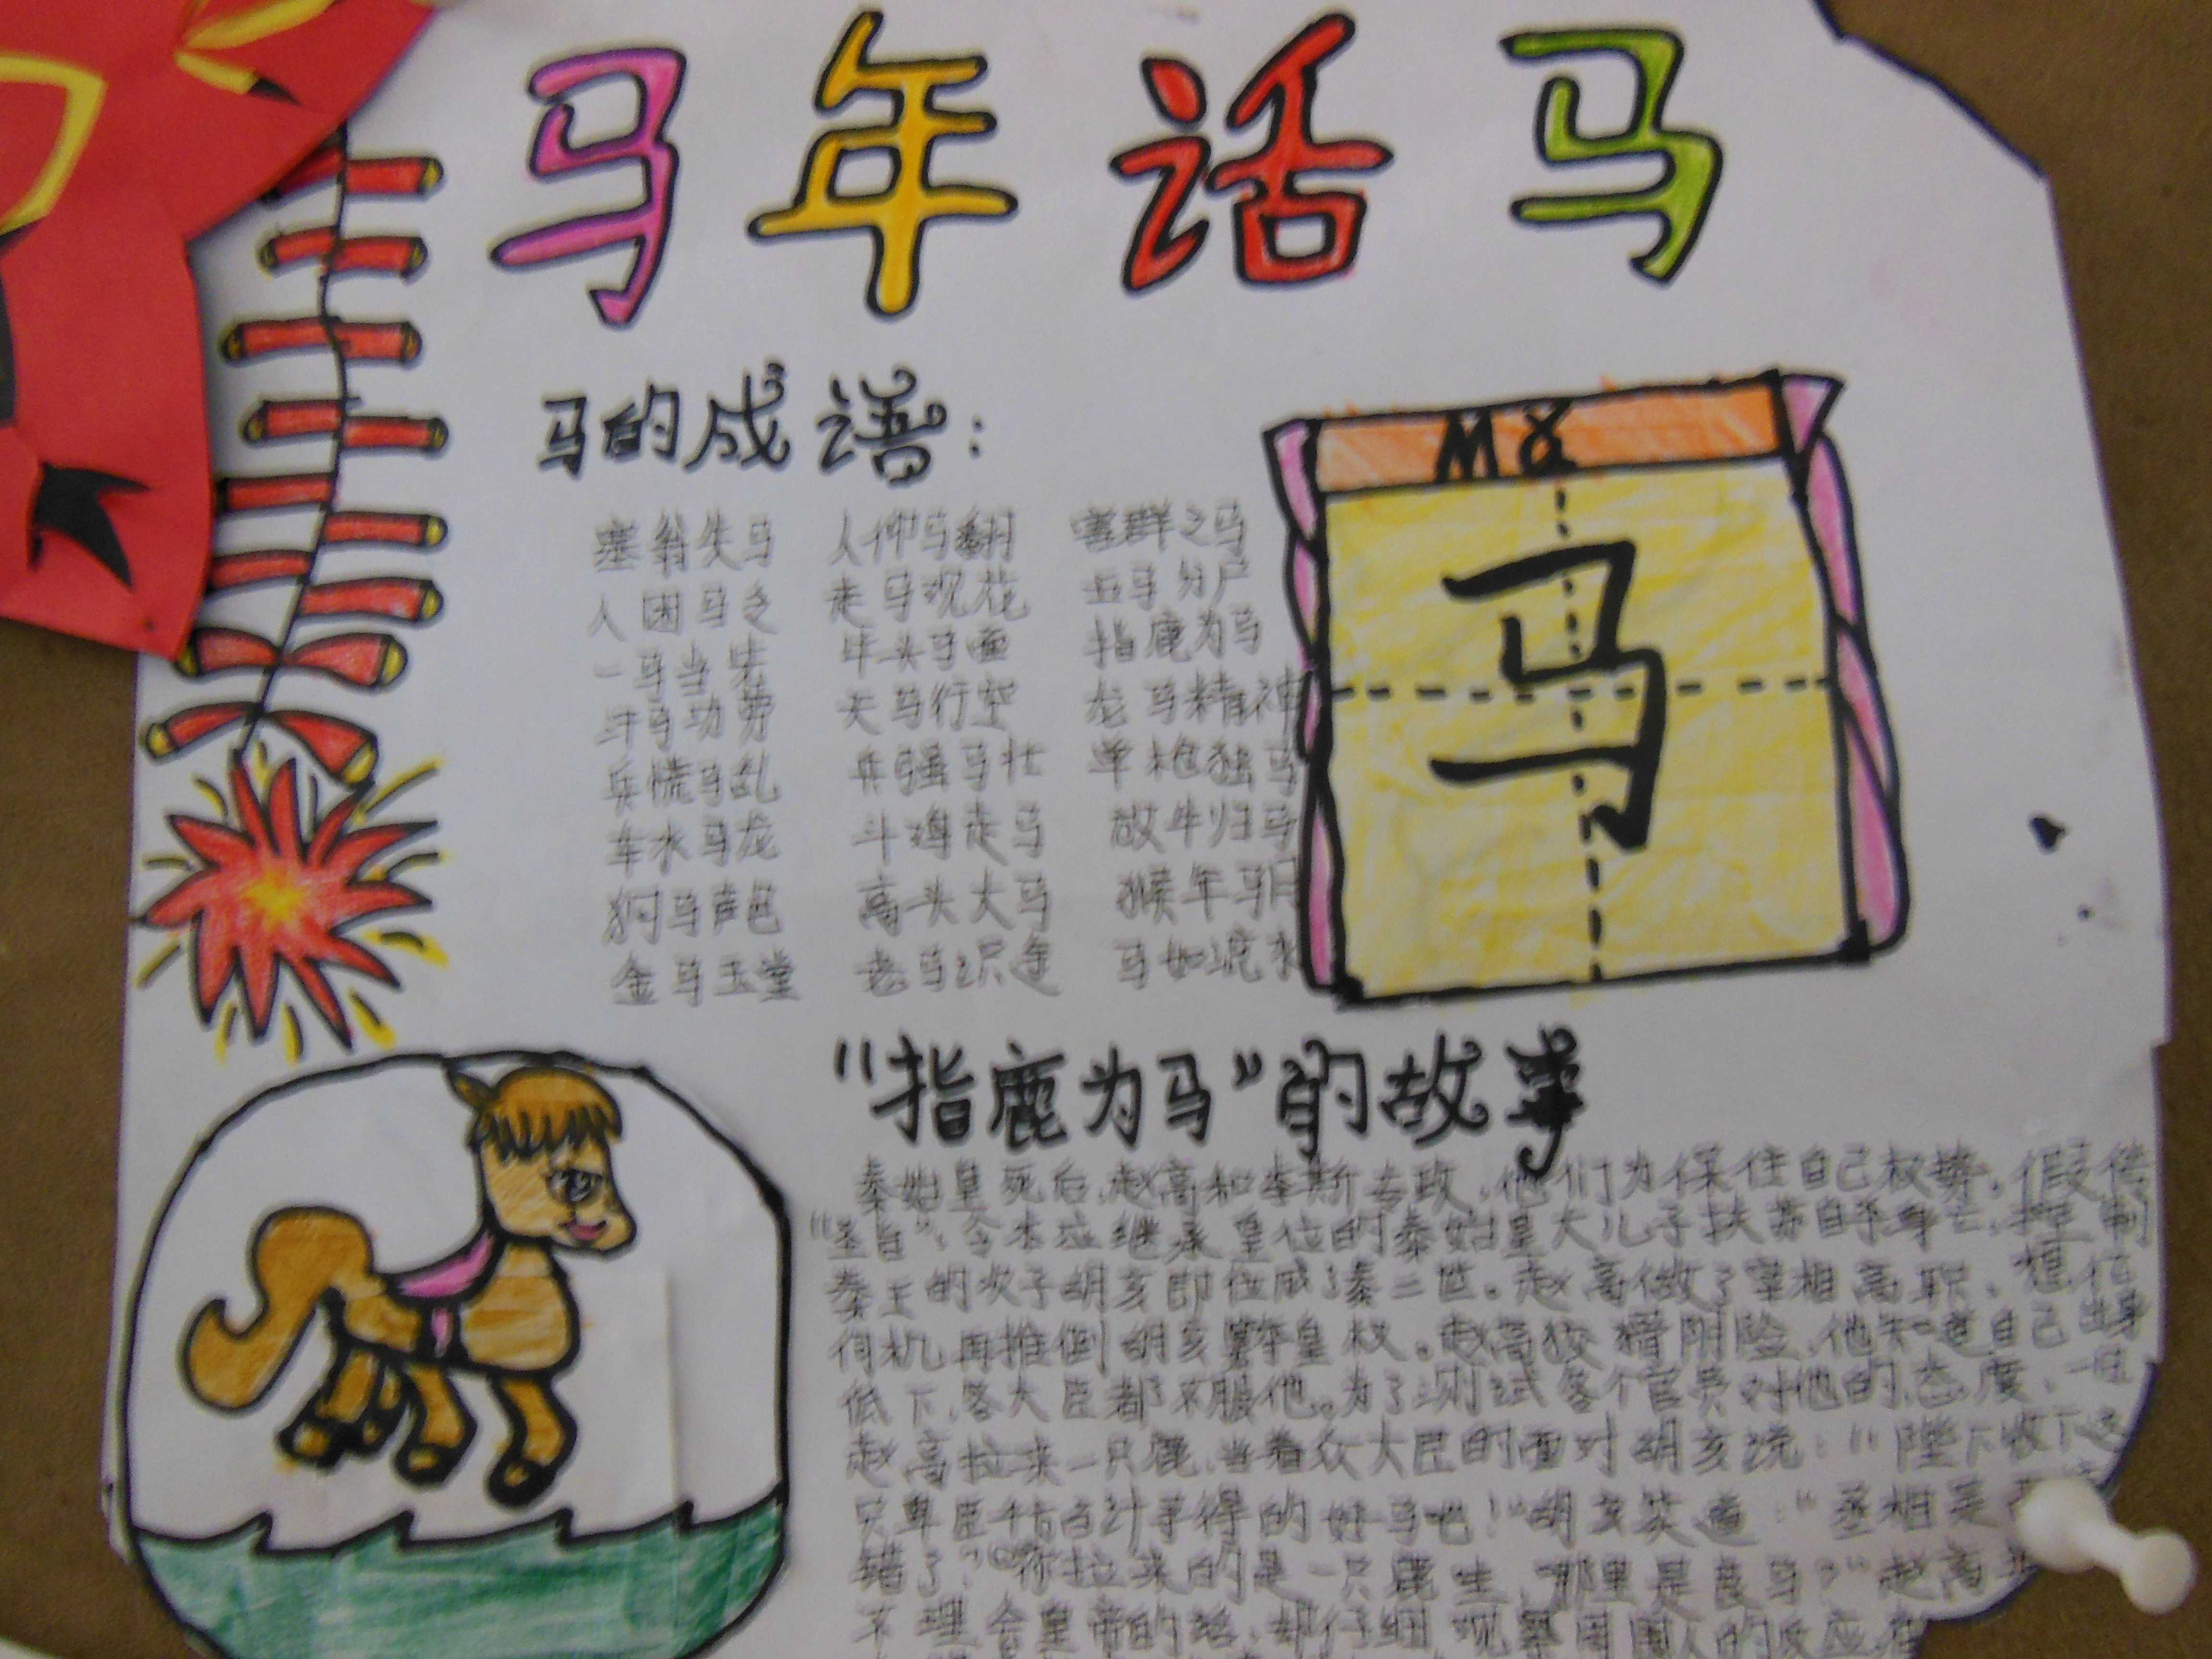 马年话马
马的成语：
mǎ
马
塞翁失马 人仰马翻 害群之马
人困马乏 走马观花 五马分尸
一马当先 牛头马面 指鹿为马
汗马功劳 天马行空 龙马精神
兵慌马乱 兵强马壮 单枪独马
车水马龙 斗鸡走马 放牛归马
狗马声色 高头大马 猴年马月
金马玉堂 老马识途 马如流水
“指鹿为马”的故事
秦始皇死后，赵高和李斯专政，他们为保住自己权势，假传
“圣旨”，令本应继承皇位的秦始皇大儿子扶苏自杀身亡，挟制
秦王的次子胡亥即位成了秦二世。赵高做了宰相高职，想
伺机再推倒胡亥篡夺皇权。赵高狡猾阴险，他知道自己出身
低下，各大臣都不服他。为了测试各个官员对他的态度，一日
赵高拉来一只鹿，当着众大臣的面对胡亥说：“陛下收下这
只卑臣千方百计寻得的好马吧！”胡亥笑道：“丞相是
错了？”“你拉来的是一只鹿生，那里是良马？”赵高
不理会皇帝的话，却仔细观察周围人的反应，